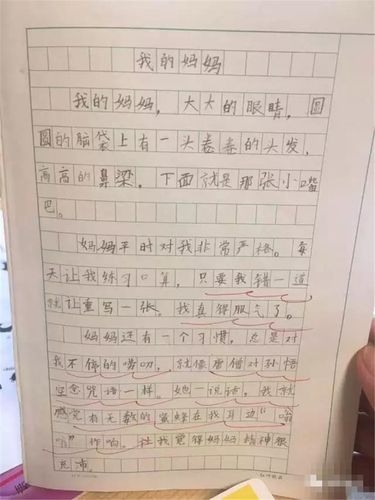 我的妈妈
我的妈妈，大大的眼睛，圆
圆的脑袋上有一头卷卷的头发，
高高的鼻梁，下面就是那张小嘴
巴。
妈妈平时对我非常严格。每
天让我练习口算，只要我错一道
就让重写一张。我真得服气了。
妈妈还有一个习惯，总是对
我不停的唠叨，就像唐僧对孙悟
空念咒语一样。她一说话，我就
感觉有无数的蜜蜂在我耳边“嗡
嗡”作响。让我觉得妈妈精神很
充沛。